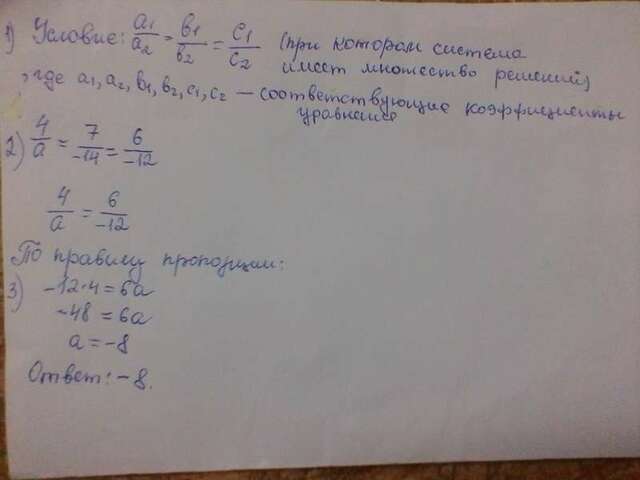 1) Условие: a1/a2 = b1/b2 = c1/c2 (при котором система
имеет множество решений)
, где a1, a2, b1, b2, c1, c2 — соответствующие коэффициенты
уравнения
2) 4/a = 7/-14 = 6/-12
4/a = 6/-12
По правилу пропорции:
3) -12·4 = 6a
-48 = 6a
a = -8
Ответ: -8.